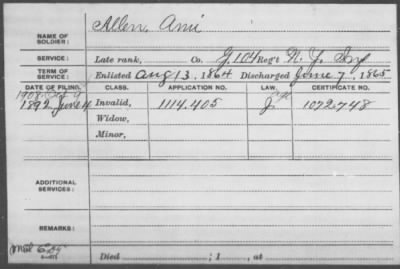 NAME OF SOLDIER: Allen, Ami
SERVICE: Late rank, Co. G, 104 Reg't N. Y. Inf
TERM OF SERVICE: Enlisted Aug 13, 1864 Discharged June 7, 1865
DATE OF FILING. CLASS. APPLICATION NO. LAW. CERTIFICATE NO.
1908
1892 June Invalid, 1114.405 J 1072.748
Widow,
Minor,
ADDITIONAL SERVICES:
REMARKS:
Died , 1 , at